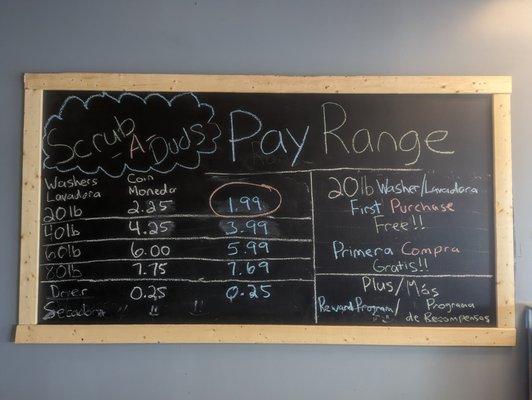 Scrub
-A-
Duds
Pay Range
Washers
Lavadora
Coin
Moneda
20lb 2.25 1.99
40lb 4.25 3.99
60lb 6.00 5.99
80lb 7.75 7.69
Drier 0.25 0.25
Secadora
20lb Washer/Lavadora
First Purchase
Free!!
Primera Compra
Gratis!!
Plus/Más
Reward Program/ Programa
de Recompensas